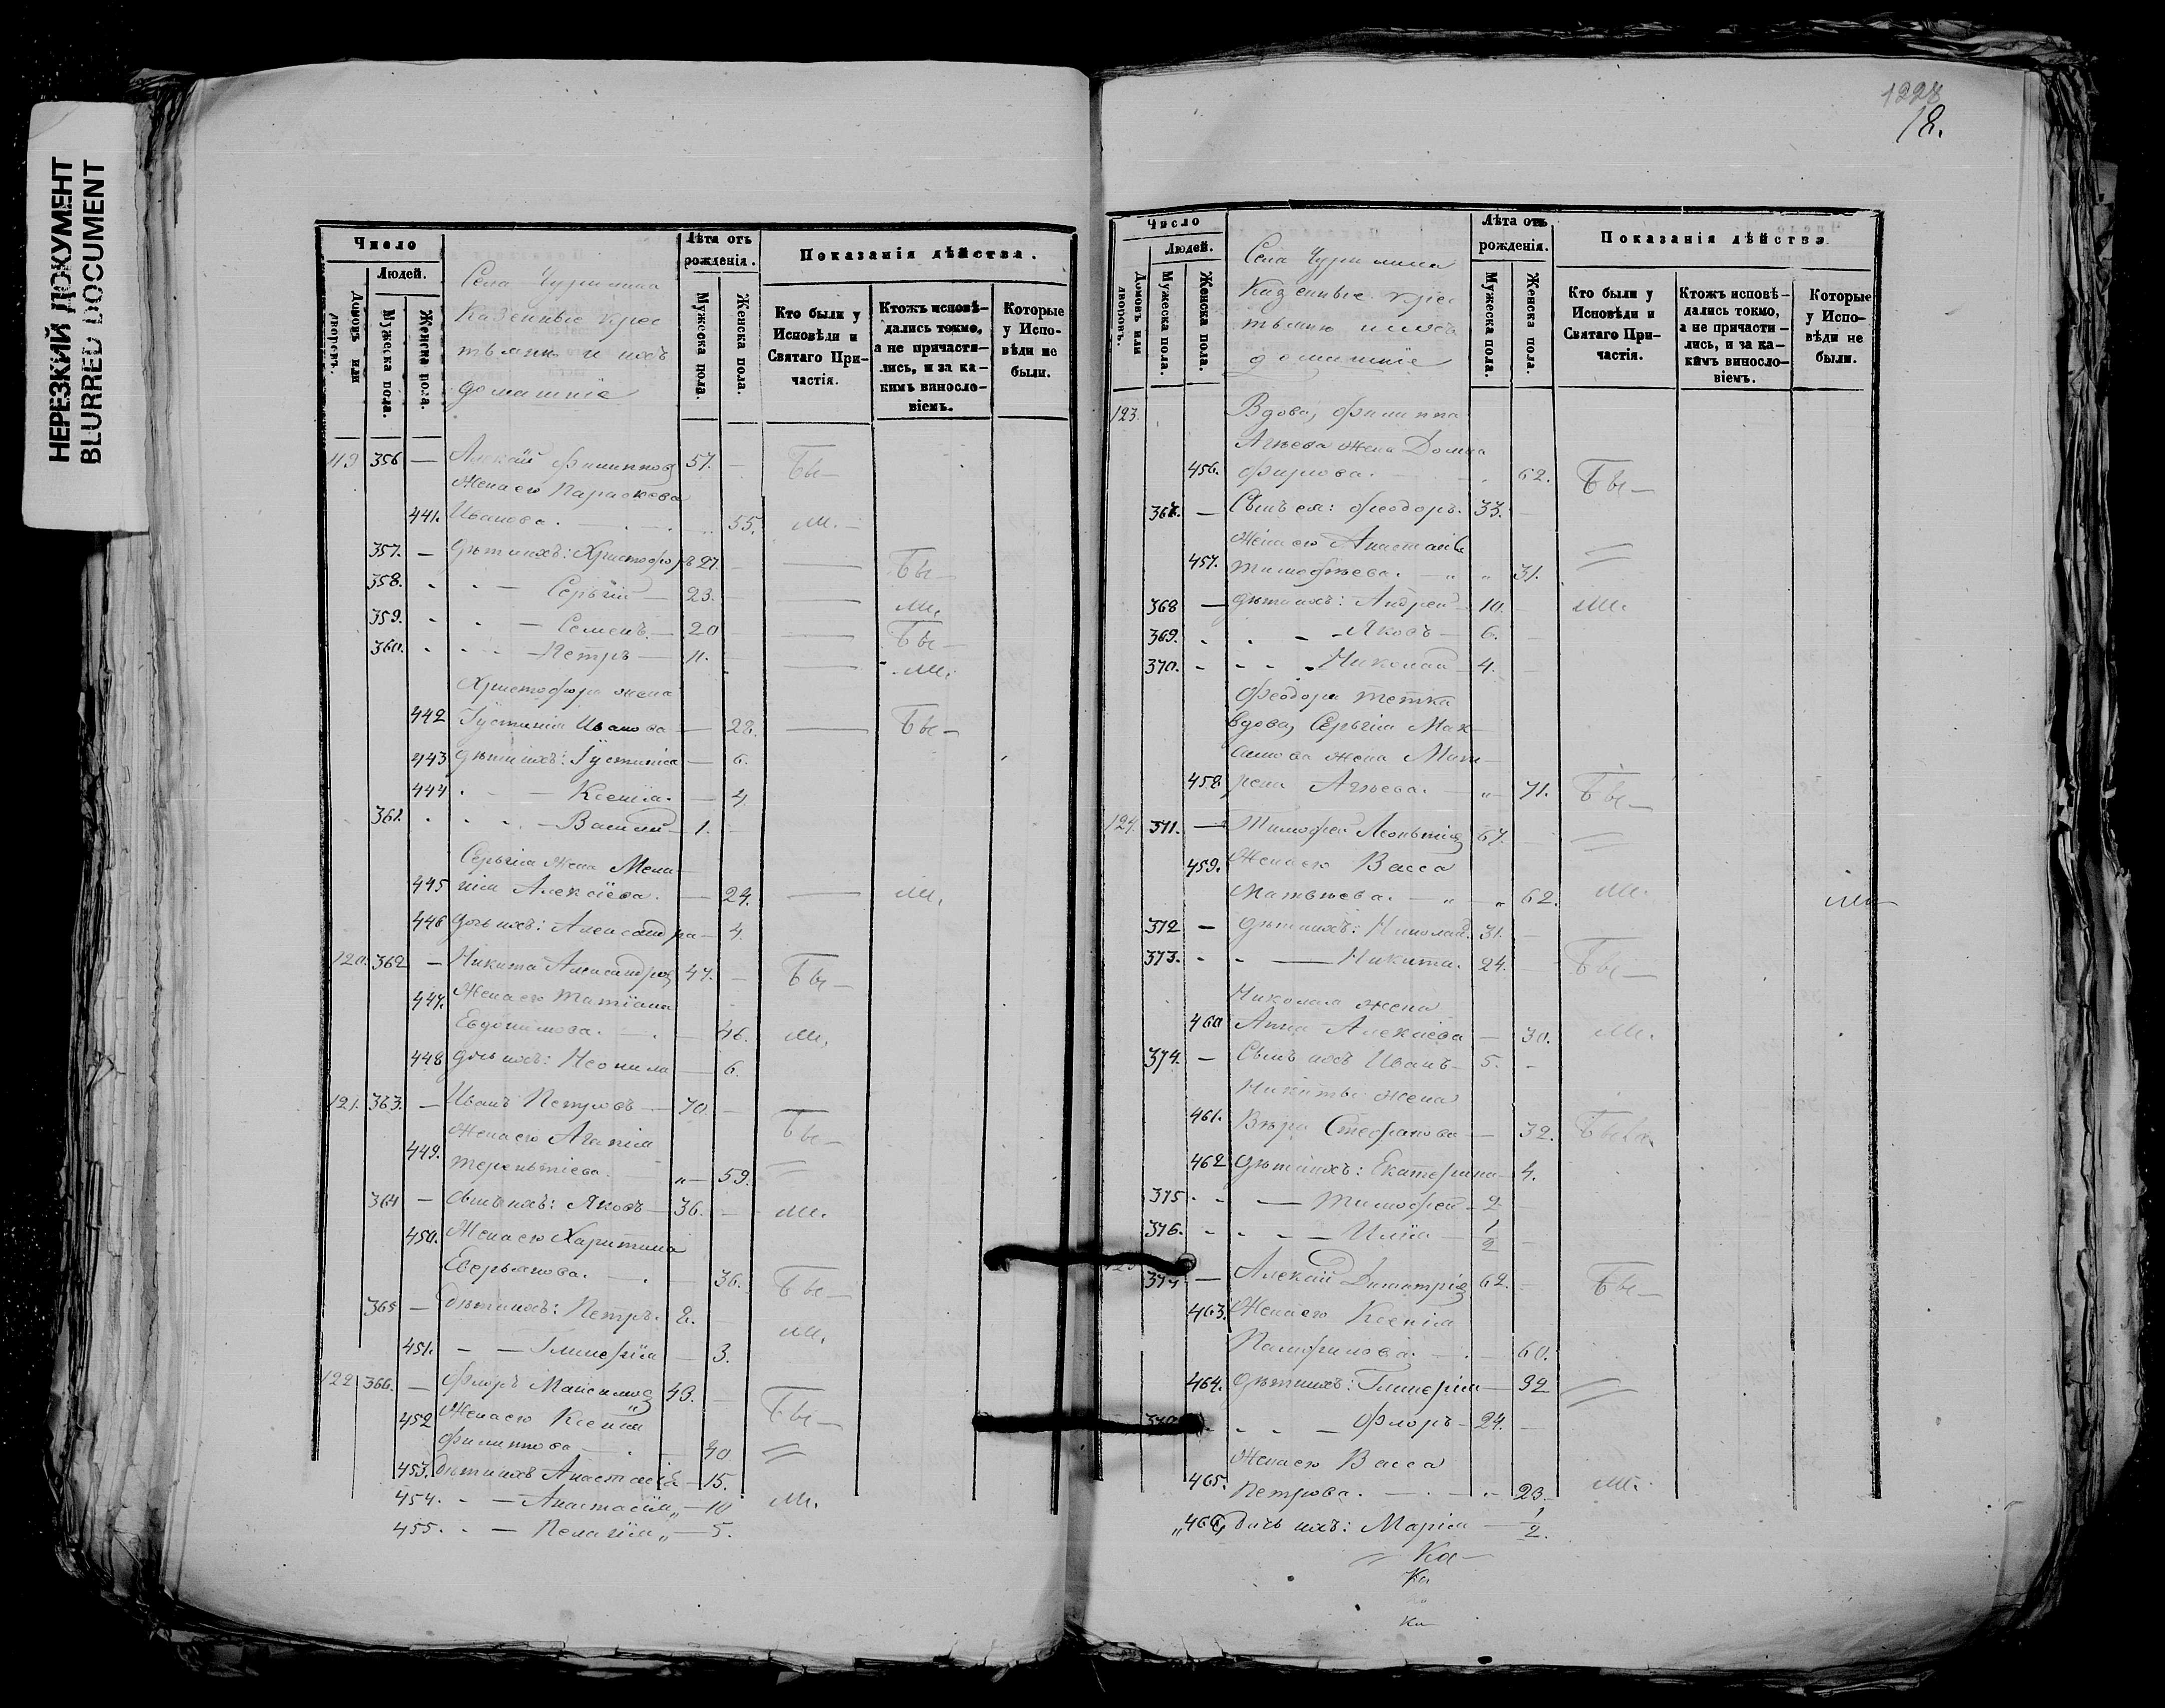 НЕРЕЗКИЙ ДОКУМЕНТ
BLURRED DOCUMENT
Число
Людей.
Домовъ или дворовъ.
Мужеска пола.
Женска пола.
Села Чурилина
Казенные крес
тьяне и ихъ
домашніе
Лѣта отъ рожденія.
Мужеска пола.
Женска пола.
Показанія дѣйства.
Кто были у Исповѣди и Святаго Причастія.
Ктожъ исповѣдались токмо, а не причастились, и за какимъ винословіемъ.
Которые у Исповѣди не были.
119 356 — Алексѣй Филиппов 57. — Бы—
Жена его Параскева
441. Иванова. — 55.
357. — Дѣти ихъ: Христофоръ 27. — Бы—
358. — Сергій — 23.
359. — Семенъ — 20 — Бы—
360. — Петръ — 11.
Христофора жена
442 Іустинія Иванова — 28. — Бы—
443 Дѣти ихъ: Іустинія — 6.
444 — Ксенія. — 4.
361. — Василій — 1.
Сергія жена Мела
445 нія Алексіева. — 24.
446 Дочь ихъ: Александра — 4.
120. 362 — Никита Александров 47. — Бы—
447. Жена его Татіана
Евдокимова. — 46.
448 Дочь ихъ: Неонила — 6.
121. 363. — Иванъ Петровъ — 70. — Бы—
Жена его Агапія
449. Терентіева. „ — 59.
364 — Сынъ ихъ: Яковъ — 36. —
450. Жена его Харитина
Аверьянова. — 36. Бы—
365 — Дѣти ихъ: Петръ. 8.
451. — — Гликерія — 3.
122 366. — Флоръ Максимов 43. — Бы—
452 Жена его Ксенія
Филиппова — 40
453. Дѣти ихъ Анастасія — 15.
454. — Анастасія „ — 10
455. — Пелагія „ — 5.
1228
18.
Число
Людей.
Домовъ или дворовъ.
Мужеска пола.
Женска пола.
Села Чурилина
Казенные крес
тьяне и ихъ
домашніе
Лѣта отъ рожденія.
Мужеска пола.
Женска пола.
Показанія дѣйства
Кто были у Исповѣди и Святаго Причастія.
Ктожъ исповѣдались токмо, а не причастились, и за какимъ винословіемъ.
Которые у Исповѣди не были.
123. Вдова, Филиппа
Агѣева жена Домна
456. Фирсова. — 62. Бы—
367. — Сынъ ея: Феодоръ. 33.
Жена его Анастасія
457. Тимофѣева. — „ 31.
368 — Дѣти ихъ: Андрей 10.
369. — Яковъ — 6.
370. — Николай — 4.
Феодора тетка
вдова, Сергія Мак
симова жена Мат
458 рена Агѣева. — „ 71. Бы—
124. 371. — Тимофей Леонтіев 67.
459. Жена его Васса
Матвѣева. — „ — „ 62.
372 — Дѣти ихъ: Николай 31.
373. — Никита. 24. Бы—
Николая жена
460 Анна Алексіева — 30.
374. — Сынъ ихъ Иванъ — 5. —
Никиты жена
461. Вѣра Стефанова — 32.
462 Дѣти ихъ: Екатерина — 4.
375 — Тимофей — 2
376. — Илія — 1/2
377 — Алексій Димитріев 62. Бы—
463. Жена его Ксенія
Памфилова. — 60.
464. Дѣти ихъ: Гликерія — 32
Флоръ — 24. —
Жена его Васса
465. Петрова. — 23.
„466„ Дочь ихъ: Марія — 1/2.
Ка—
Ка
Ка